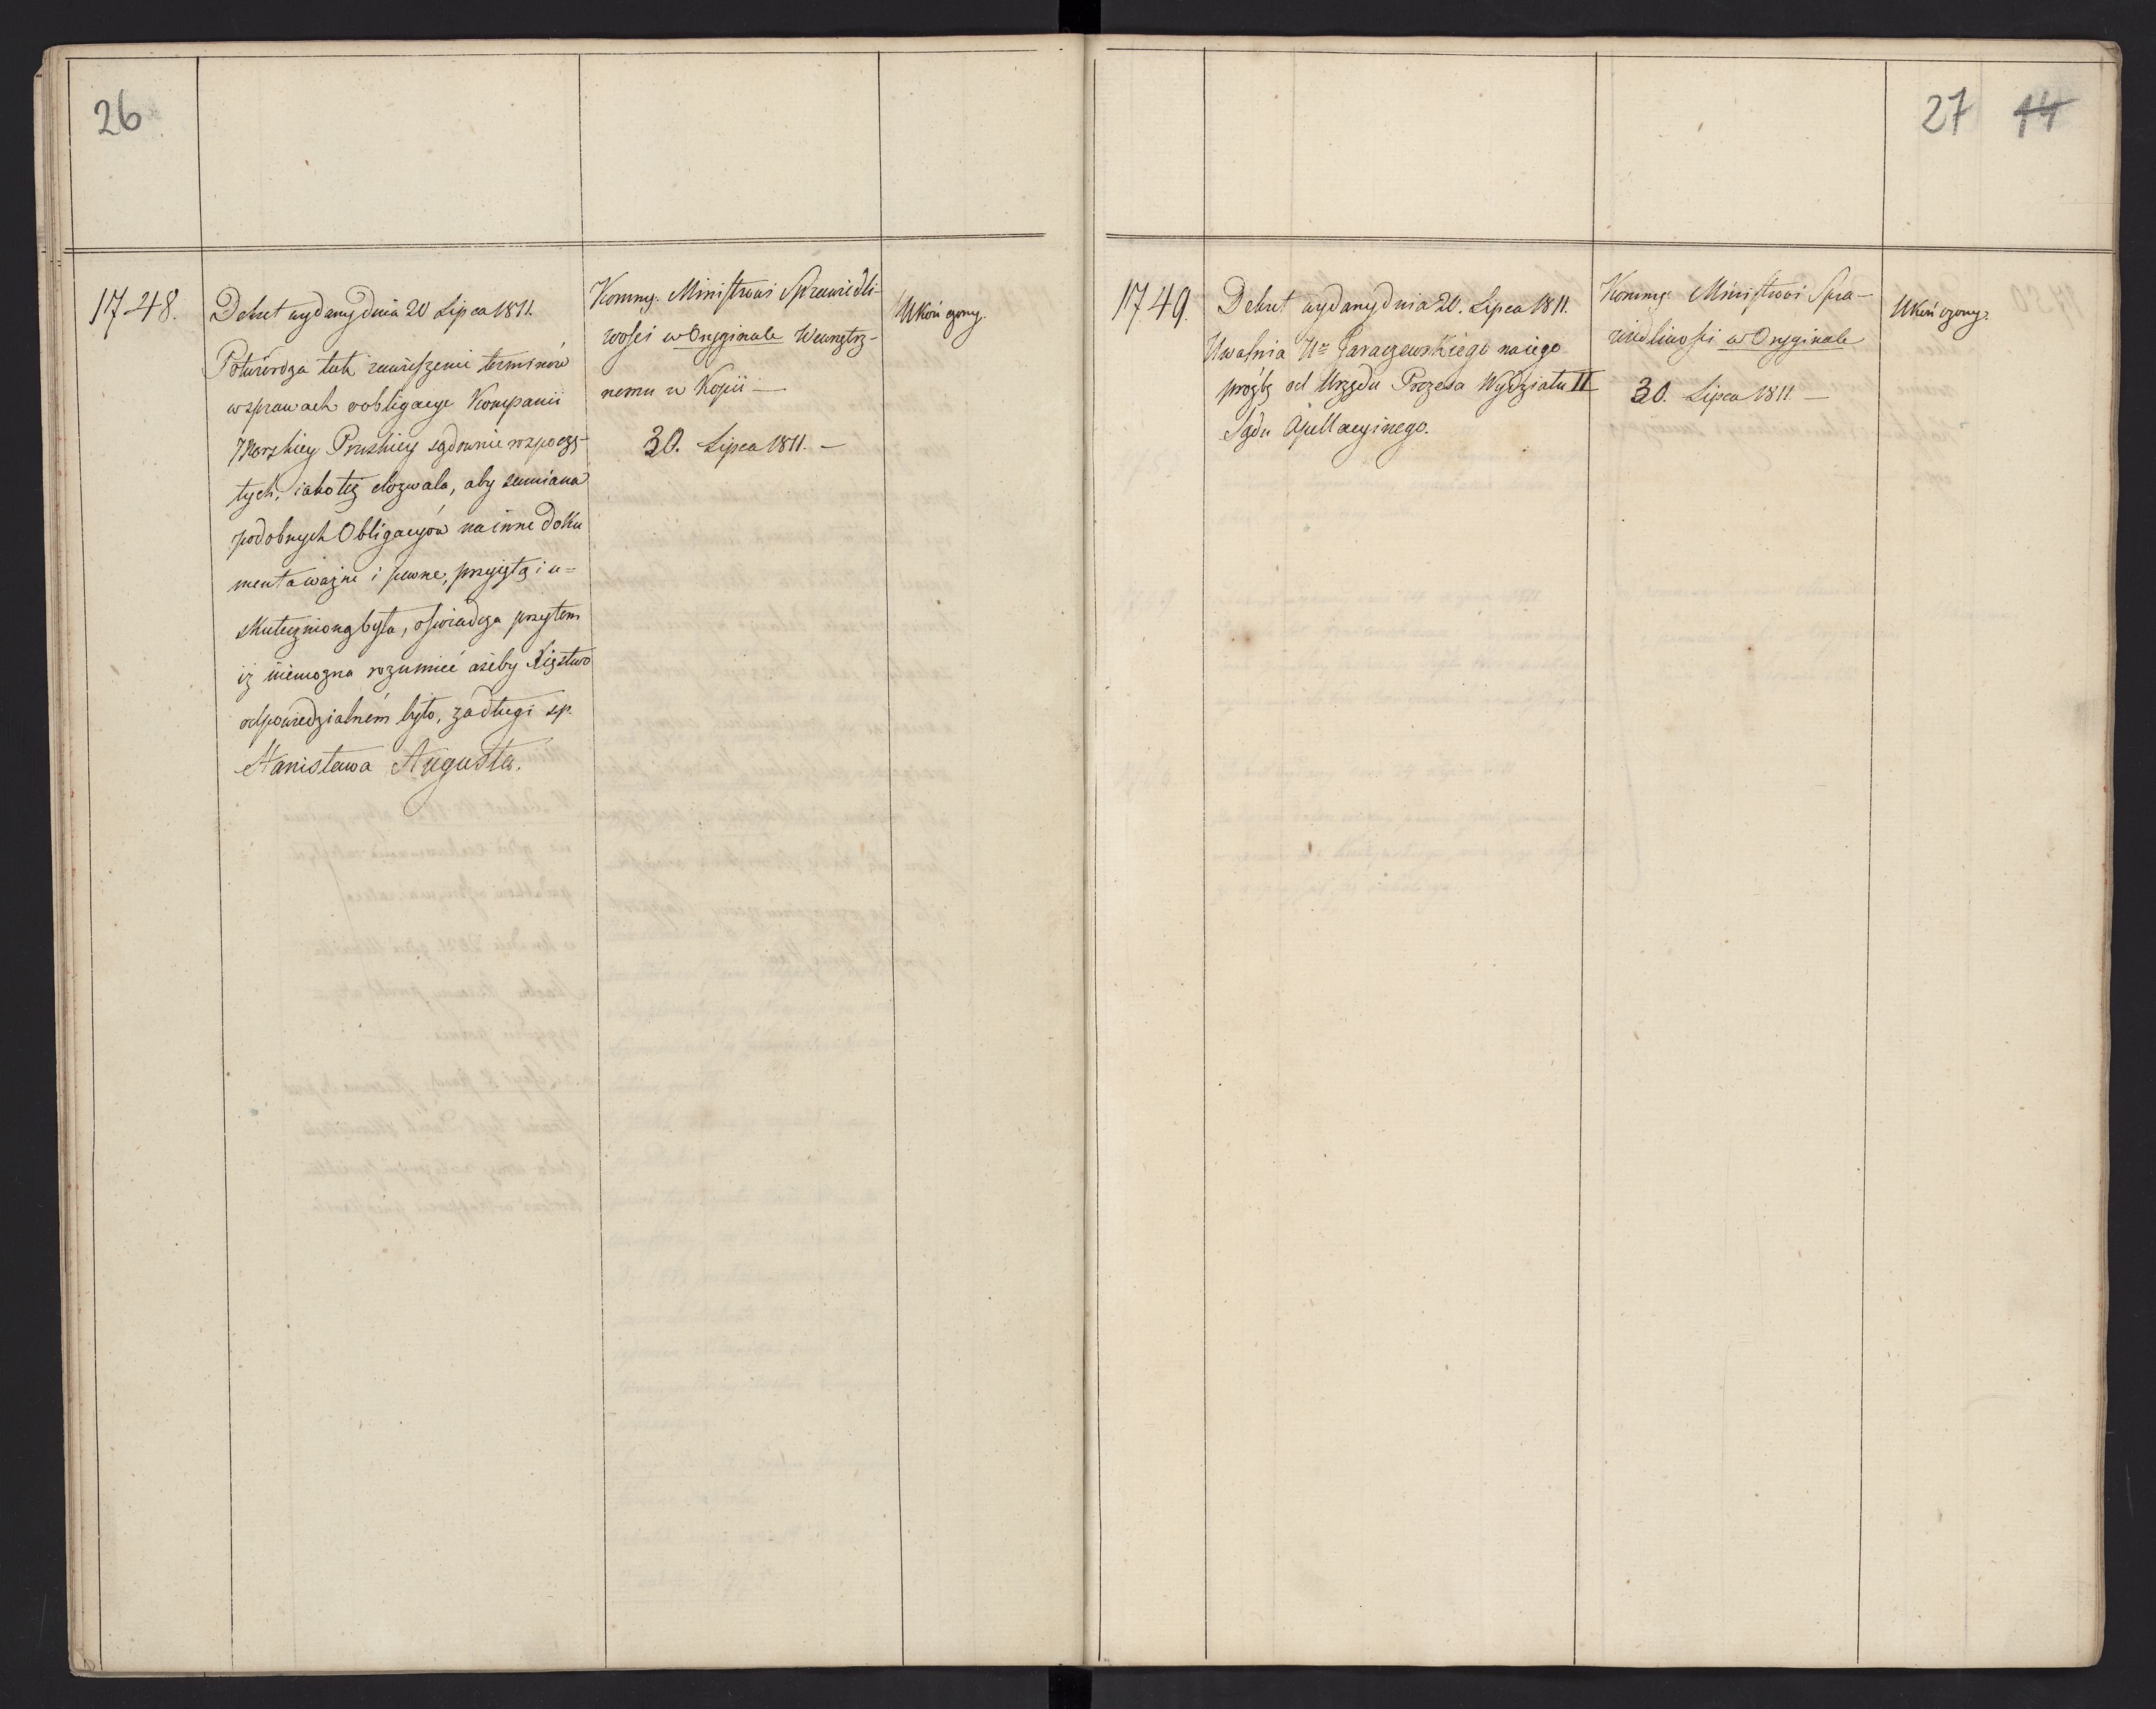 26
1748.
Dekret wydany dnia 20 Lipca 1811.
Potwierdza tak zawieszenie terminów
w sprawach o obligacye Kompanii
Morskiey Pruskiey sądownie rozpoczę-
tych, iako też dozwala, aby zamiana
podobnych Obligacyów na inne doku
menta ważne i pewne, przyiętą i u=
skutecznioną była, oświadcza przytem
iż niemożna rozumieć ażeby Xięstwo
odpowiedzialném było, za długi sp.
Stanisława Augusta.
Kommu: Ministrowi Sprawiedli-
wości w Oryginale Wewnętrz-
nemu w Kopii —
30. Lipca 1811. —
Ukończony.
27 14
1749.
Dekret wydany dnia 20. Lipca 1811.
Uwalnia Ur Garaczewskiego na iego
prożbę od Urzędu Prezesa Wydziału II
Sądu Apellacyinego.
Kommu: Ministrowi Spra-
wiedliwości w Oryginale
30. Lipca 1811. —
Ukończony.